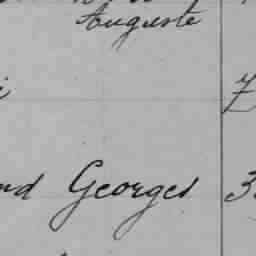 Auguste
nd Georges 3